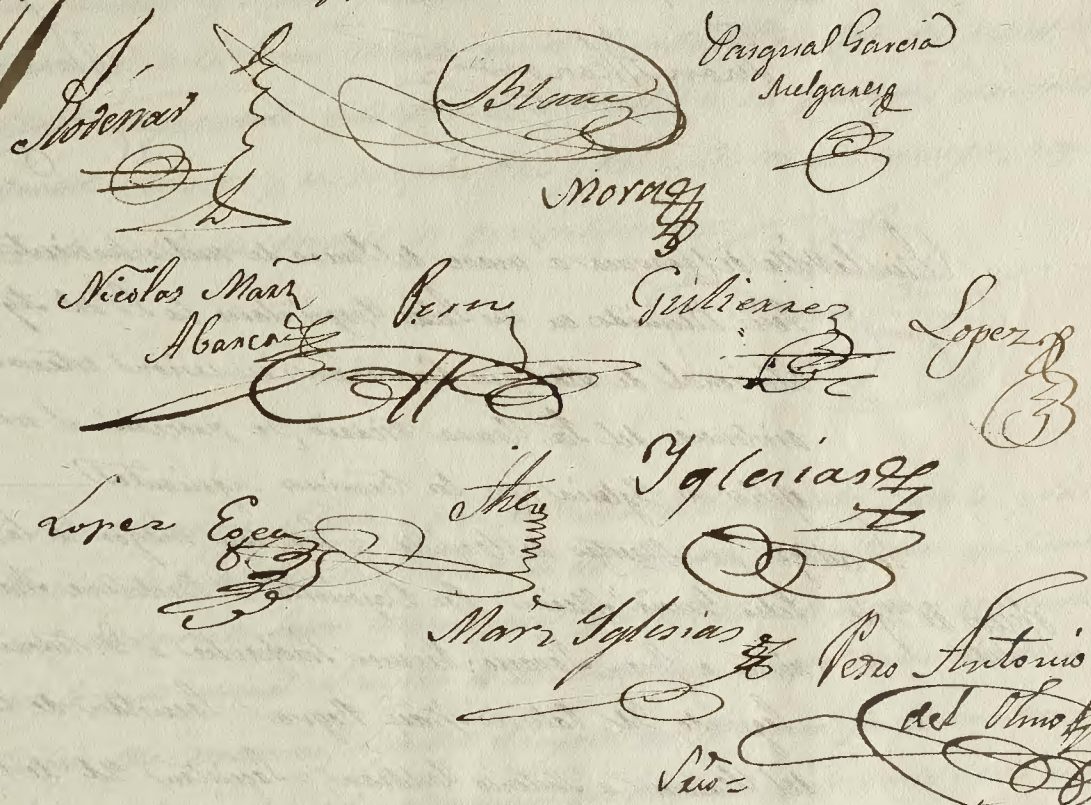 Rodenas
Blanc
Pasqual Garcia
Melgares
Mora
Nicolas Marñ
Abarca
Gutierrez
Lopez
Lopez Egea
Yglesias
Marñ Yglesias
Pedro Antonio
del Olmo
Srio=